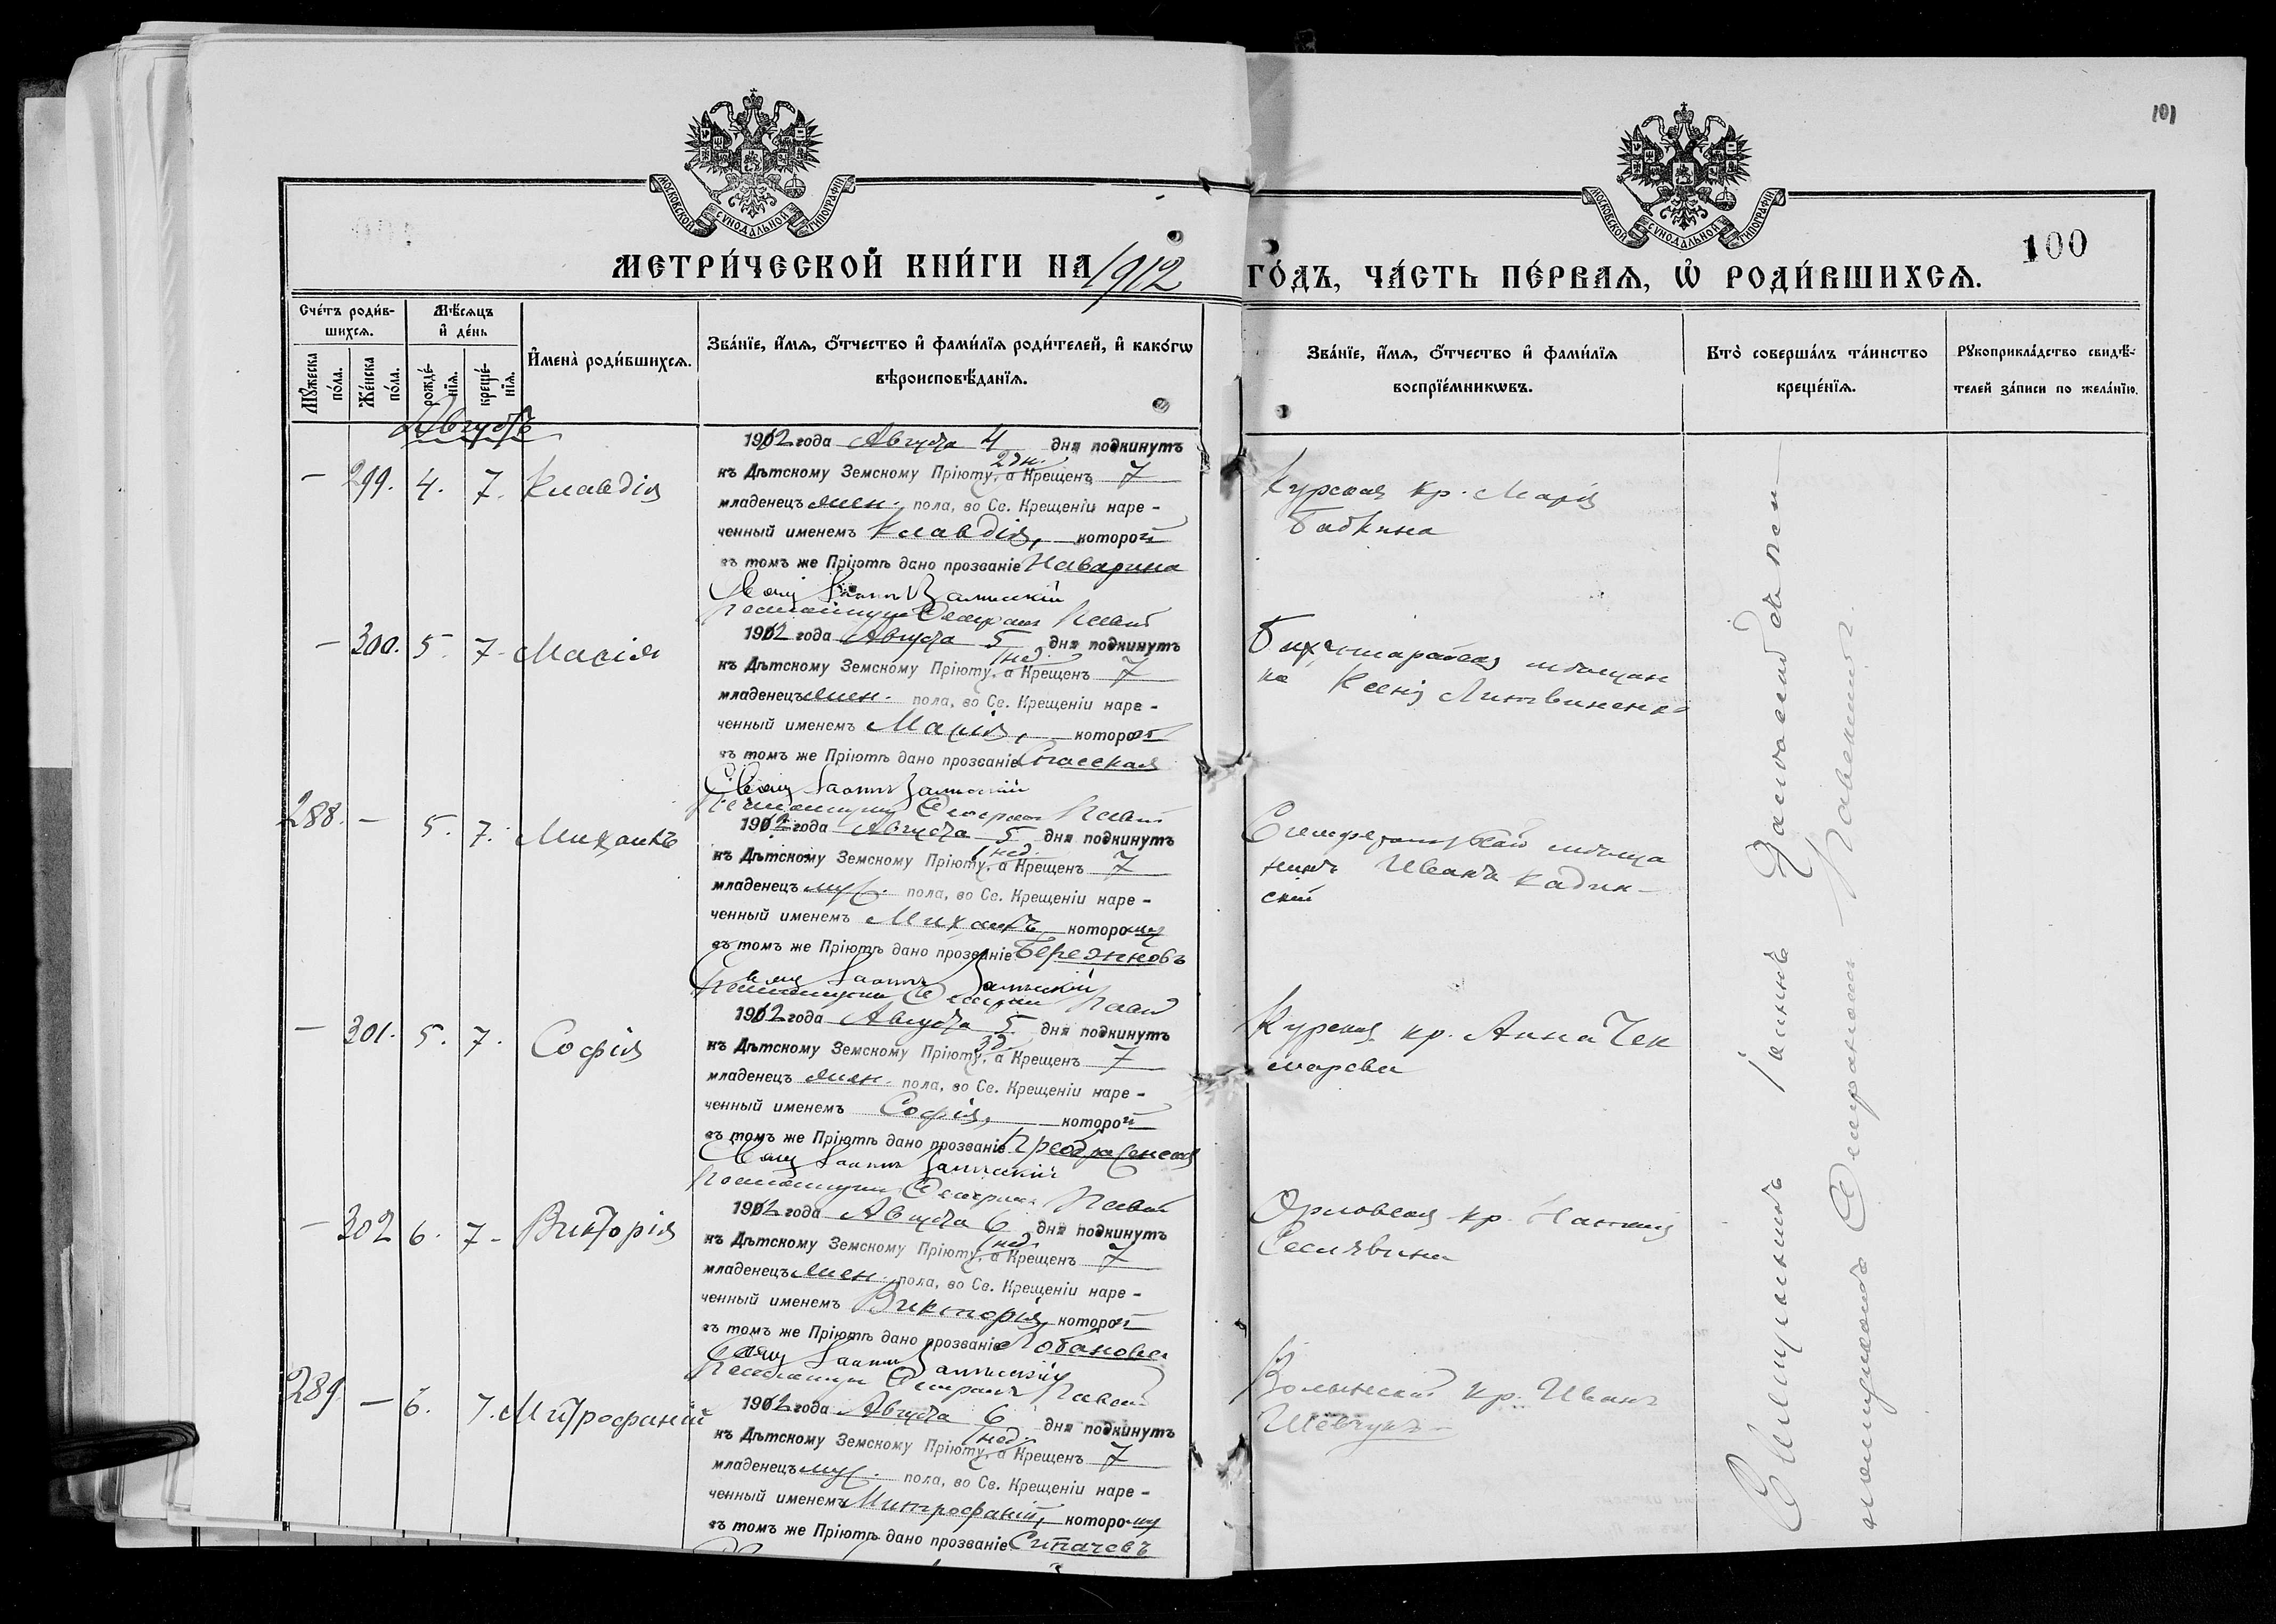 101
МОСКОВСКОЙ СУНОДАЛЬНОЙ ТИПОГРАФІИ
МОСКОВСКОЙ СУНОДАЛЬНОЙ ТИПОГРАФІИ
100
МЕТРИ́ЧЕСКОЙ КНИ́ГИ НА 1912 ГО́ДЪ, ЧА́СТЬ ПЕ́РВАѦ, Ѡ҆ РОДИ́ВШИХСѦ.
Сче́тъ роди́в-
шихсѧ.
Мꙋ́жеска по́ла.
Же́нска по́ла.
Мѣ́сѧцъ
и҆ де́нь
рожде́-
нїѧ.
креще́-
нїѧ.
И҆мена̀ роди́вшихсѧ.
Зва́нїе, и҆́мѧ, ѻ҆́тчество и҆ фами́лїѧ роди́телей, и҆ како́гѡ
вѣроисповѣ́данїѧ.
Зва́нїе, и҆́мѧ, ѻ҆́тчество и҆ фами́лїѧ
воспрїе́мникѡвъ.
Кто̀ соверша́лъ та́инство
креще́нїѧ.
Рꙋкоприкла́дство свидѣ́-
телей за́писи по жела́нїю.
Августъ
— 299. 4. 7. Клавдія
1912 года Августа 4 дня подкинутъ
2 дн.
къ Дѣтскому Земскому Пріюту, а Крещенъ 7
младенецъ жен. пола, во Св. Крещеніи наре-
ченный именемъ Клавдія, которой
въ томъ же Пріютѣ дано прозваніе Наварина
Курская кр. Марія
Бабкина
— 300. 5. 7. Марія
1912 года Августа 5 дня подкинутъ
1 нед.
къ Дѣтскому Земскому Пріюту, а Крещенъ 7
младенецъ жен. пола, во Св. Крещеніи наре-
ченный именемъ Марія, которой
въ томъ же Пріютѣ дано прозваніе Спасская
мѣщан
ка Ксенія Литвиненко
288. — 5. 7. Михаилъ
1912 года Августа 5 дня подкинутъ
1 нед.
къ Дѣтскому Земскому Пріюту, а Крещенъ 7
младенецъ муж. пола, во Св. Крещеніи наре-
ченный именемъ Михаилъ, которому
въ томъ же Пріютѣ дано прозваніе Бережновъ
мѣща
нинъ Иванъ Кадин-
скій
— 301. 5. 7. Софія
1912 года Августа 5 дня подкинутъ
3 д
къ Дѣтскому Земскому Пріюту, а Крещенъ 7
младенецъ жен. пола, во Св. Крещеніи наре-
ченный именемъ Софія, которой
въ томъ же Пріютѣ дано прозваніе Преображенская
Курская кр. Анна Чек
марева
— 302 6. 7. Викторія
1912 года Августа 6 дня подкинутъ
1 нед.
къ Дѣтскому Земскому Пріюту, а Крещенъ 7
младенецъ жен. пола, во Св. Крещеніи наре-
ченный именемъ Викторія, которой
въ томъ же Пріютѣ дано прозваніе Лобанова
Орловская кр. Наталія
Селявина
289. — 6. 7. Митрофаній
1912 года Августа 6 дня подкинутъ
1 нед.
къ Дѣтскому Земскому Пріюту, а Крещенъ 7
младенецъ муж. пола, во Св. Крещеніи наре-
ченный именемъ Митрофаній, которому
въ томъ же Пріютѣ дано прозваніе Сипачевъ
Волынскій кр. Иванъ
Шевчукъ
Священникъ Іоаннъ